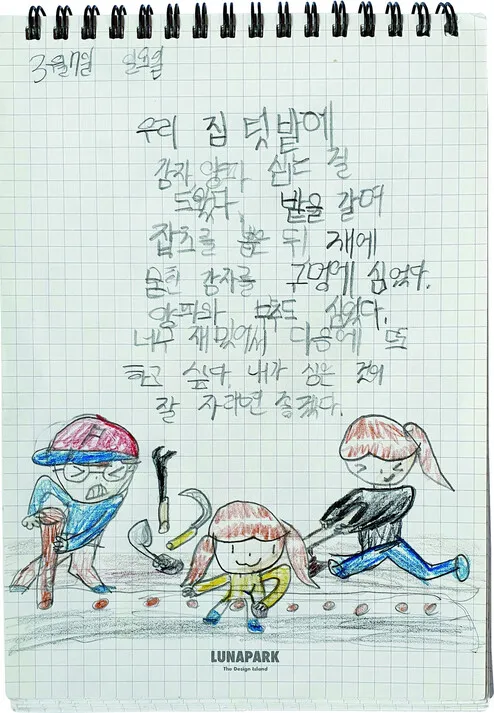 3월7일 일요일
우리 집 텃밭에
감자, 양파 심는 걸
도왔다. 밭을 갈며
잡초를 뽑은 뒤 재에
묻힌 감자를 구멍에 심었다.
양파와 부추도 심었다.
너무 재밌어서 다음에 또
하고 싶다. 내가 심은 것이
잘 자라면 좋겠다.
LUNAPARK
The Design Island